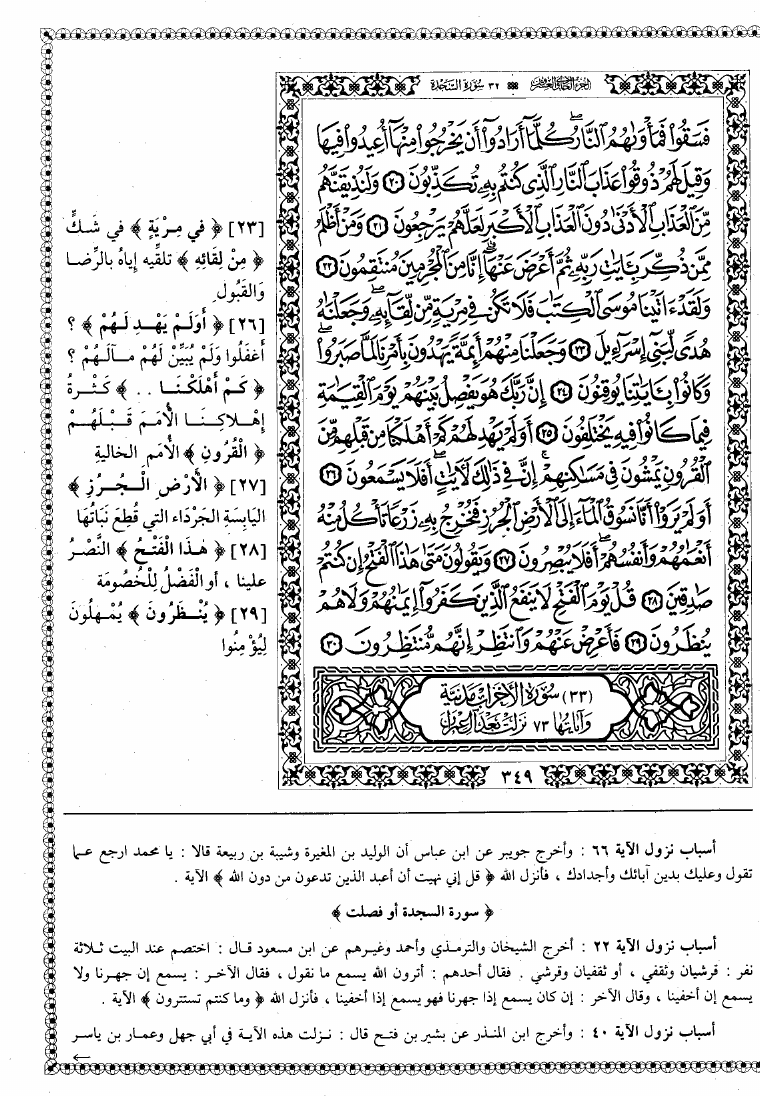 ٣٢ سُورَةُ السَّجْدَة
فَسَقُوا۟ فَمَأْوَىٰهُمُ ٱلنَّارُ ۖ كُلَّمَآ أَرَادُوٓا۟ أَن يَخْرُجُوا۟ مِنْهَآ أُعِيدُوا۟ فِيهَا
وَقِيلَ لَهُمْ ذُوقُوا۟ عَذَابَ ٱلنَّارِ ٱلَّذِى كُنتُم بِهِۦ تُكَذِّبُونَ ﴿٢٠﴾ وَلَنُذِيقَنَّهُم
مِّنَ ٱلْعَذَابِ ٱلْأَدْنَىٰ دُونَ ٱلْعَذَابِ ٱلْأَكْبَرِ لَعَلَّهُمْ يَرْجِعُونَ ﴿٢١﴾ وَمَنْ أَظْلَمُ
مِمَّن ذُكِّرَ بِـَٔايَٰتِ رَبِّهِۦ ثُمَّ أَعْرَضَ عَنْهَآ ۚ إِنَّا مِنَ ٱلْمُجْرِمِينَ مُنتَقِمُونَ ﴿٢٢﴾
وَلَقَدْ ءَاتَيْنَا مُوسَى ٱلْكِتَٰبَ فَلَا تَكُن فِى مِرْيَةٍ مِّن لِّقَآئِهِۦ ۖ وَجَعَلْنَٰهُ
هُدًى لِّبَنِىٓ إِسْرَٰٓءِيلَ ﴿٢٣﴾ وَجَعَلْنَا مِنْهُمْ أَئِمَّةً يَهْدُونَ بِأَمْرِنَا لَمَّا صَبَرُوا۟ ۖ
وَكَانُوا۟ بِـَٔايَٰتِنَا يُوقِنُونَ ﴿٢٤﴾ إِنَّ رَبَّكَ هُوَ يَفْصِلُ بَيْنَهُمْ يَوْمَ ٱلْقِيَٰمَةِ
فِيمَا كَانُوا۟ فِيهِ يَخْتَلِفُونَ ﴿٢٥﴾ أَوَلَمْ يَهْدِ لَهُمْ كَمْ أَهْلَكْنَا مِن قَبْلِهِم مِّنَ
ٱلْقُرُونِ يَمْشُونَ فِى مَسَٰكِنِهِمْ ۚ إِنَّ فِى ذَٰلِكَ لَـَٔايَٰتٍ ۖ أَفَلَا يَسْمَعُونَ ﴿٢٦﴾
أَوَلَمْ يَرَوْا۟ أَنَّا نَسُوقُ ٱلْمَآءَ إِلَى ٱلْأَرْضِ ٱلْجُرُزِ فَنُخْرِجُ بِهِۦ زَرْعًا تَأْكُلُ مِنْهُ
أَنْعَٰمُهُمْ وَأَنفُسُهُمْ ۖ أَفَلَا يُبْصِرُونَ ﴿٢٧﴾ وَيَقُولُونَ مَتَىٰ هَٰذَا ٱلْفَتْحُ إِن كُنتُمْ
صَٰدِقِينَ ﴿٢٨﴾ قُلْ يَوْمَ ٱلْفَتْحِ لَا يَنفَعُ ٱلَّذِينَ كَفَرُوٓا۟ إِيمَٰنُهُمْ وَلَا هُمْ
يُنظَرُونَ ﴿٢٩﴾ فَأَعْرِضْ عَنْهُمْ وَٱنتَظِرْ إِنَّهُم مُّنتَظِرُونَ ﴿٣٠﴾
(٣٣) سُورَةُ الأَحْزَابِ مَدَنِيَّة
وَآيَاتُهَا ٧٣ نَزَلَت بَعْدَ آلِ عِمْرَان
٣٤٩
[٢٣] ﴿ في مِرْيَةٍ ﴾ في شَكٍّ
﴿ مِنْ لِقَائِهِ ﴾ تلقّيه إياهُ بالرِّضا
وَالقَبُول
[٢٦] ﴿ أَوَلَمْ يَهْدِ لَهُمْ ﴾ ؟
أغفلُوا وَلَمْ يُبَيَّنْ لَهُمْ مآلَهُمْ ؟
﴿ كَمْ أَهْلَكْنَا . . ﴾ كَثْرةُ
إهْلاكِنَا الأُمَمَ قَبْلَهُمْ
﴿ الْقُرُونِ ﴾ الأُمَم الخالية
[٢٧] ﴿ الأَرْضِ الْجُرُزِ ﴾
اليَابِسَةِ الجَرْدَاء التي قُطِعَ نَبَاتُهَا
[٢٨] ﴿ هٰذَا الْفَتْحُ ﴾ النَّصْرُ
علينا ، أو الفَصْلُ لِلْخُصُومَة
[٢٩] ﴿ يُنْظَرُونَ ﴾ يُمْهلُونَ
لِيُؤْمِنُوا
أسباب نزول الآية ٦٦ : وأخرج جويبر عن ابن عباس أن الوليد بن المغيرة وشيبة بن ربيعة قالا : يا محمد ارجع عما
تقول وعليك بدين آبائك وأجدادك ، فأنزل الله ﴿ قل إني نهيت أن أعبد الذين تدعون من دون الله ﴾ الآية .
﴿ سورة السجدة أو فصلت ﴾
أسباب نزول الآية ٢٢ : أخرج الشيخان والترمذي وأحمد وغيرهم عن ابن مسعود قال : اختصم عند البيت ثلاثة
نفر : قرشيان وثقفي ، أو ثقفيان وقرشي . فقال أحدهم : أترون الله يسمع ما نقول ، فقال الآخر : يسمع إن جهرنا ولا
يسمع إن أخفينا ، وقال الآخر : إن كان يسمع إذا جهرنا فهو يسمع إذا أخفينا ، فأنزل الله ﴿ وما كنتم تستترون ﴾ الآية .
أسباب نزول الآية ٤٠ : وأخرج ابن المنذر عن بشير بن فتح قال : نزلت هذه الآية في أبي جهل وعمار بن ياسر